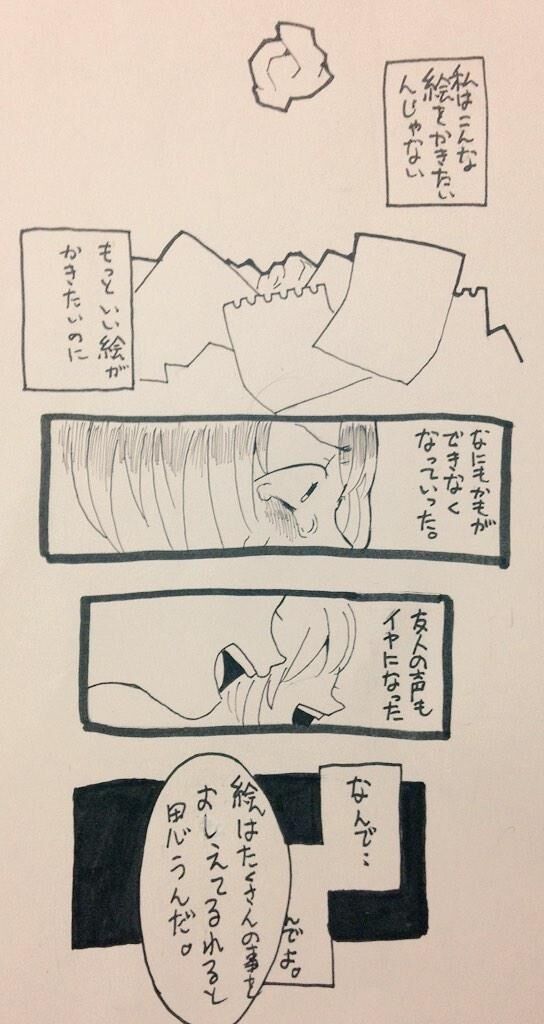 私はこんな
絵をかきたい
んじゃない
もっといい絵が
かきたいのに
なにもかもが
できなく
なっていった。
友人の声も
イヤになった
なんで…
んでよ。
絵はたくさんの事を
おしえてるれると
思うんだ。